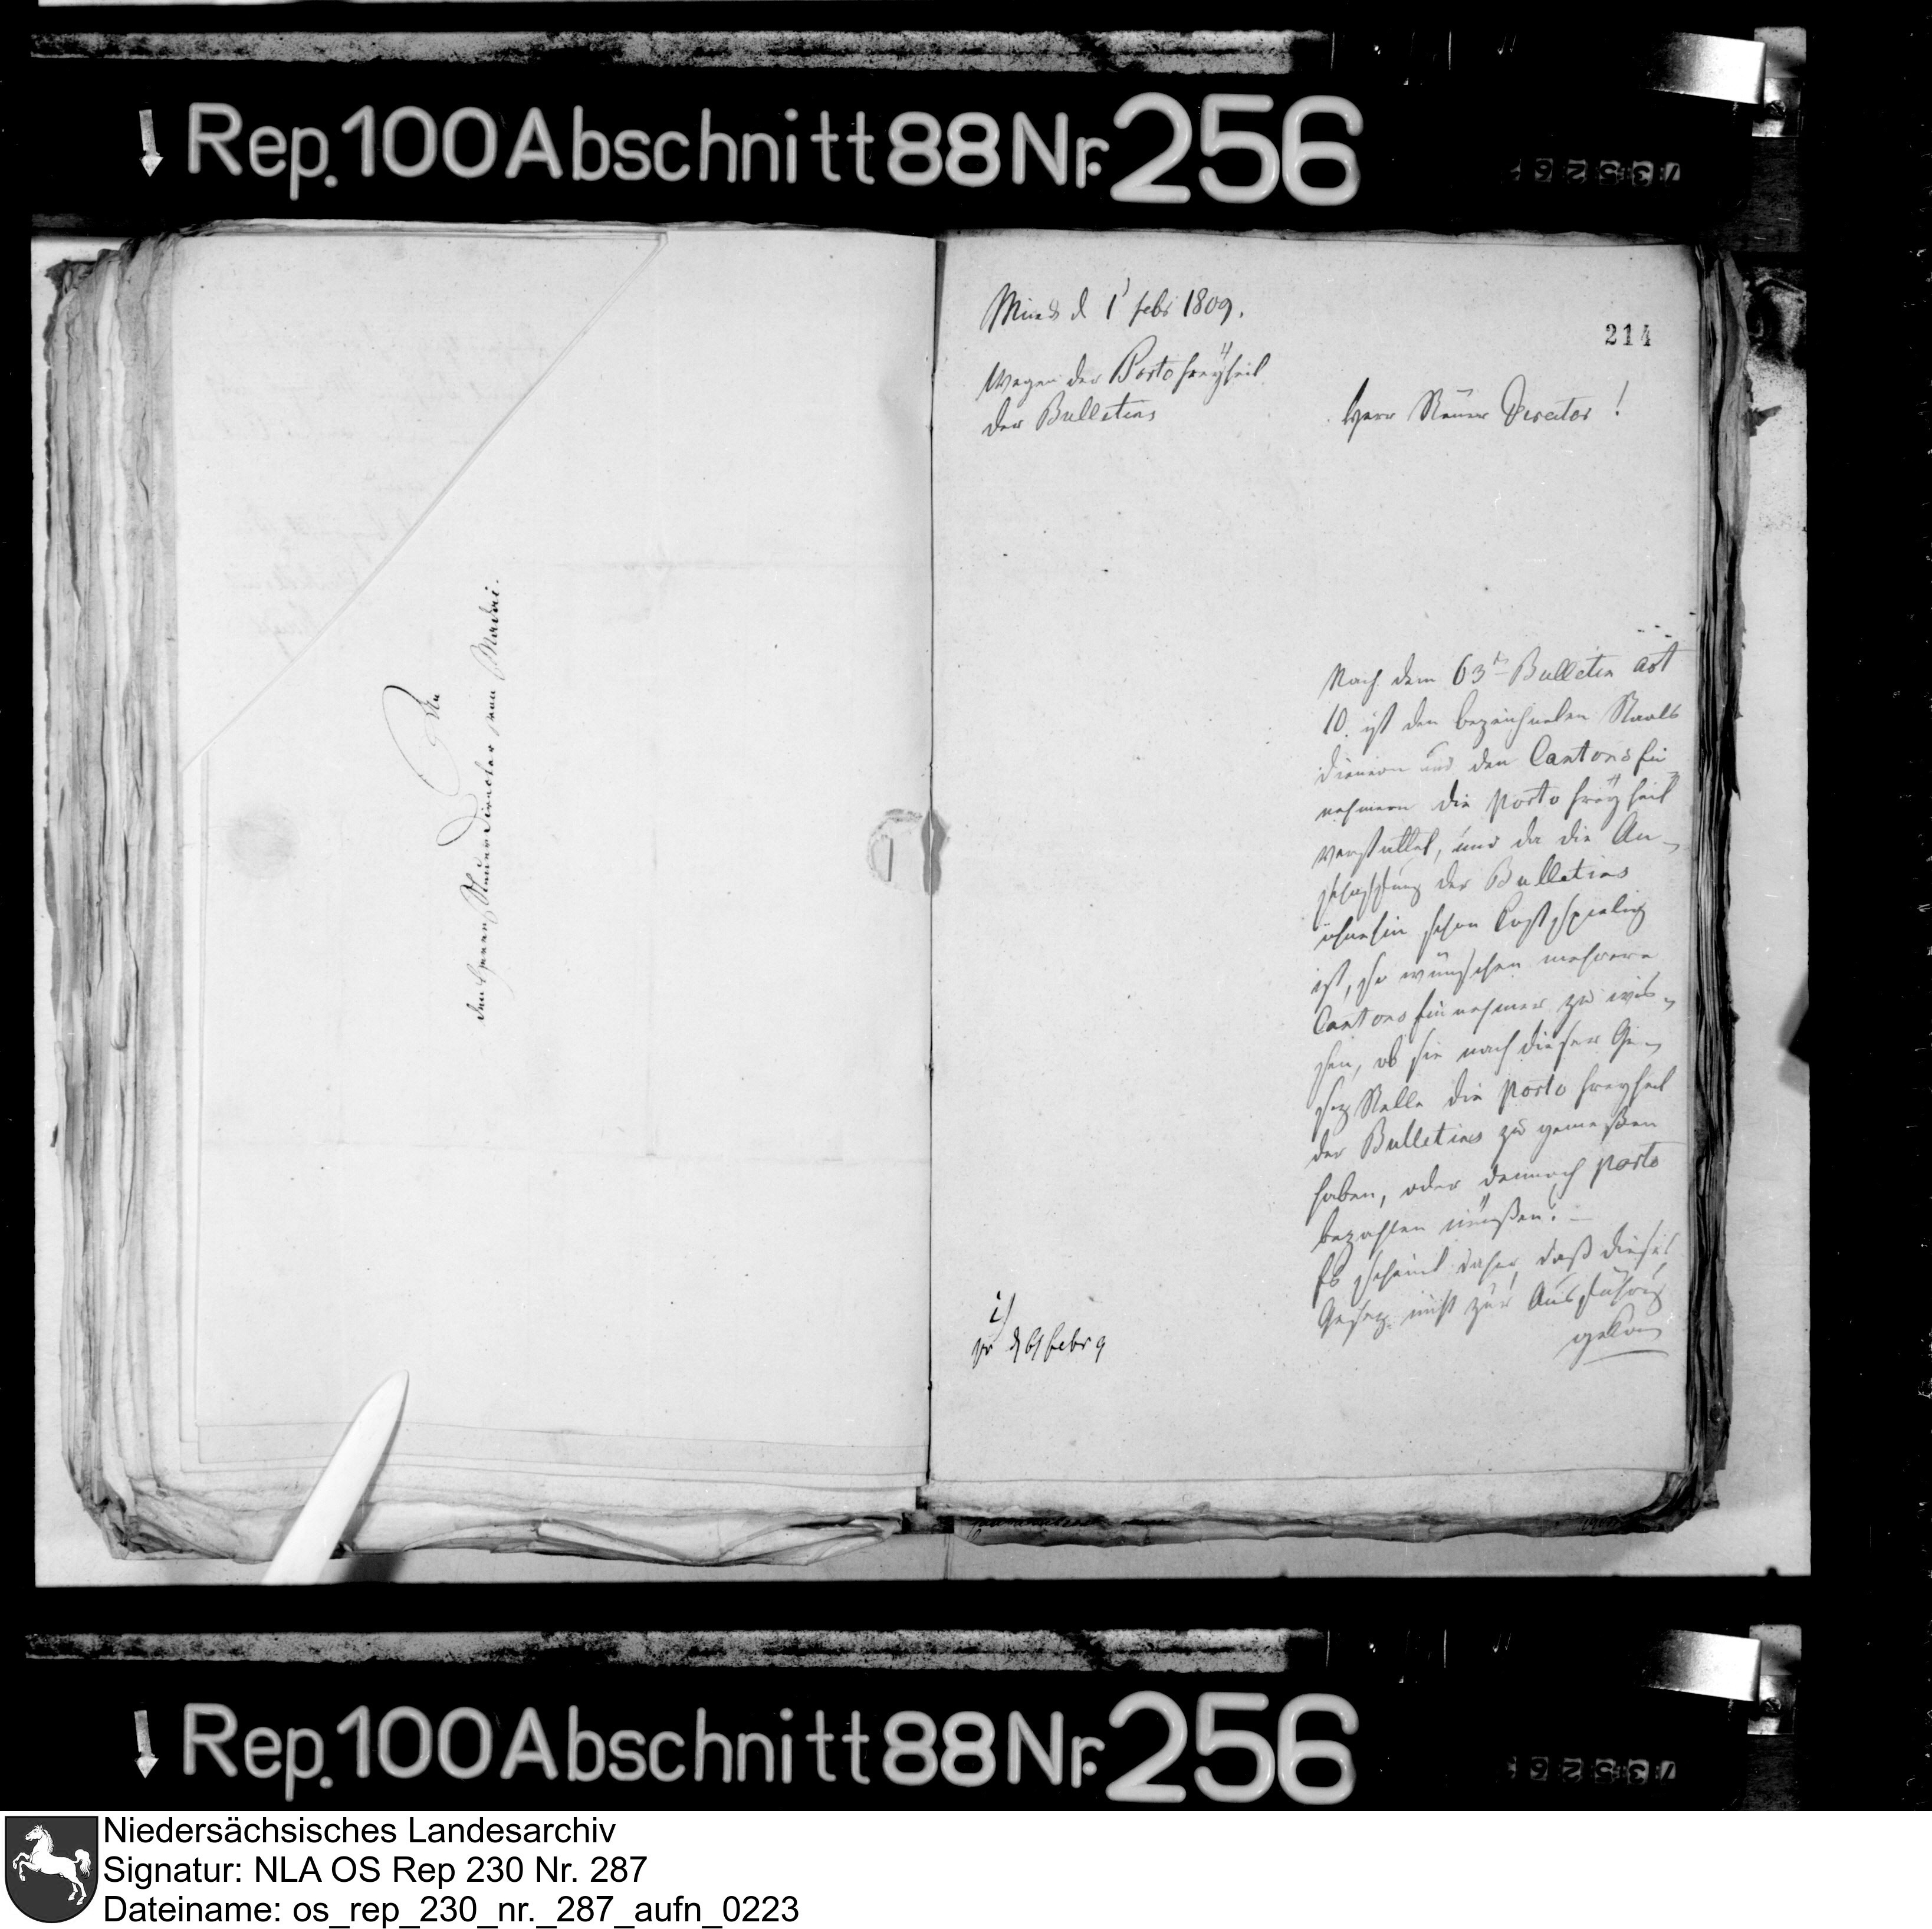 Rep. 100 Abschnitt 88 Nr. 256
An
den Herren Steuerdirector von Madai.
d 1 febr 1809.
214
Wegen der Porto freÿheit
der Bulletins
Herr Steuer Director!
Nach dem 63ten Bulletin art
10. ist den bezeichneten Staats
dienern und den Cantons Ein
nehmern die Porto freÿheit
verstattet, und da die An-
schaffung der Bulletins
ohnehin schon Kostspielig
ist, so wünschen mehrere
Cantons Einnehmer zu wis-
sen, ob sie nach dieser Ge-
setz Stelle die Porto freyheit
der Bulletins zu genießen
haben, oder dennoch Porto
bezahlen müßen? -
Es scheint daher, daß dieses
Gesetz nicht zur Ausführung
pr d 6t febr 9
Rep. 100 Abschnitt 88 Nr. 256
Niedersächsisches Landesarchiv
Signatur: NLA OS Rep 230 Nr. 287
Dateiname: os_rep_230_nr._287_aufn_0223